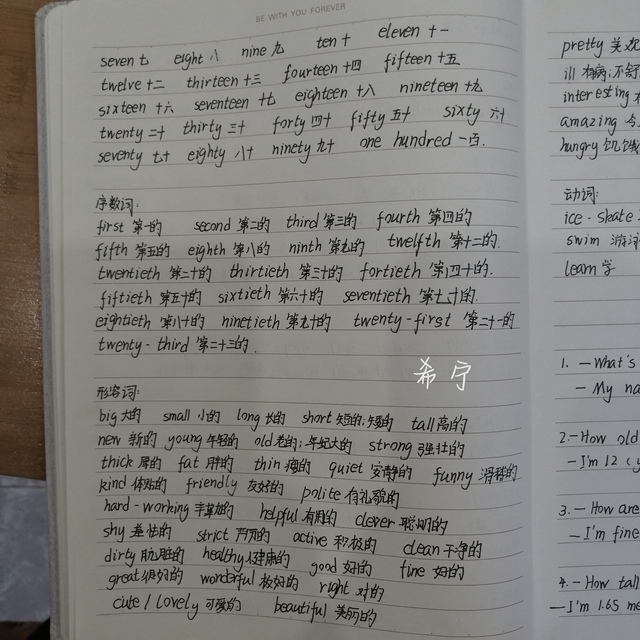 BE WITH YOU FOREVER
seven 七 eight 八 nine 九 ten 十 eleven 十一
twelve 十二 thirteen 十三 fourteen 十四 fifteen 十五
sixteen 十六 seventeen 十七 eighteen 十八 nineteen 十九
twenty 二十 thirty 三十 forty 四十 fifty 五十 sixty 六十
seventy 七十 eighty 八十 ninety 九十 one hundred 一百.
序数词:
first 第一的 second 第二的 third 第三的 fourth 第四的
fifth 第五的 eighth 第八的 ninth 第九的 twelfth 第十二的.
twentieth 第二十的 thirtieth 第三十的 fortieth 第四十的.
fiftieth 第五十的 sixtieth 第六十的 seventieth 第七十的.
eightieth 第八十的 ninetieth 第九十的 twenty-first 第二十一的
twenty-third 第二十三的.
希宁
形容词:
big 大的 small 小的 long 长的 short 短的;矮的 tall 高的
new 新的 young 年轻的 old 老的;年纪大的 strong 强壮的
thick 厚的 fat 胖的 thin 瘦的 quiet 安静的 funny 滑稽的
kind 体贴的 friendly 友好的 polite 有礼貌的
hard-working 辛勤的 helpful 有用的 clever 聪明的
shy 羞怯的 strict 严厉的 active 积极的 clean 干净的
dirty 肮脏的 healthy 健康的 good 好的 fine 好的
great 很好的 wonderful 极好的 right 对的
cute / lovely 可爱的 beautiful 美丽的
pretty 美
ill 有病;不舒
interesting
amazing 令
hungry 饥饿
动词:
ice-skate
swim 游泳
learn 学
1. - What's
- My na
2. - How old
- I'm 12 (y
3. - How are
- I'm fine
4. - How tall
- I'm 1.65 me